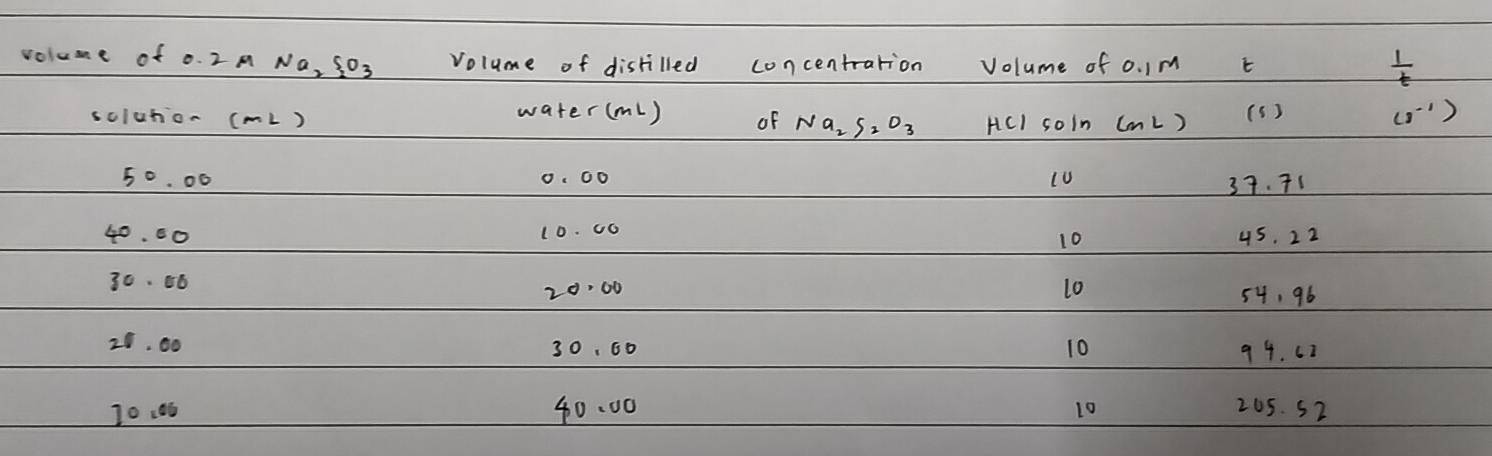 volume of 0.2 M Na₂S₂O₃ Volume of distilled concentration Volume of 0.1M t 1/t
solution (mL) water (mL) of Na₂S₂O₃ HCl soln (mL) (s) (s⁻¹)
50.00 0.00 10 37.71
40.00 10.00 10 45.22
30.00 20.00 10 54.96
20.00 30.00 10
10.00 40.00 10 205.52